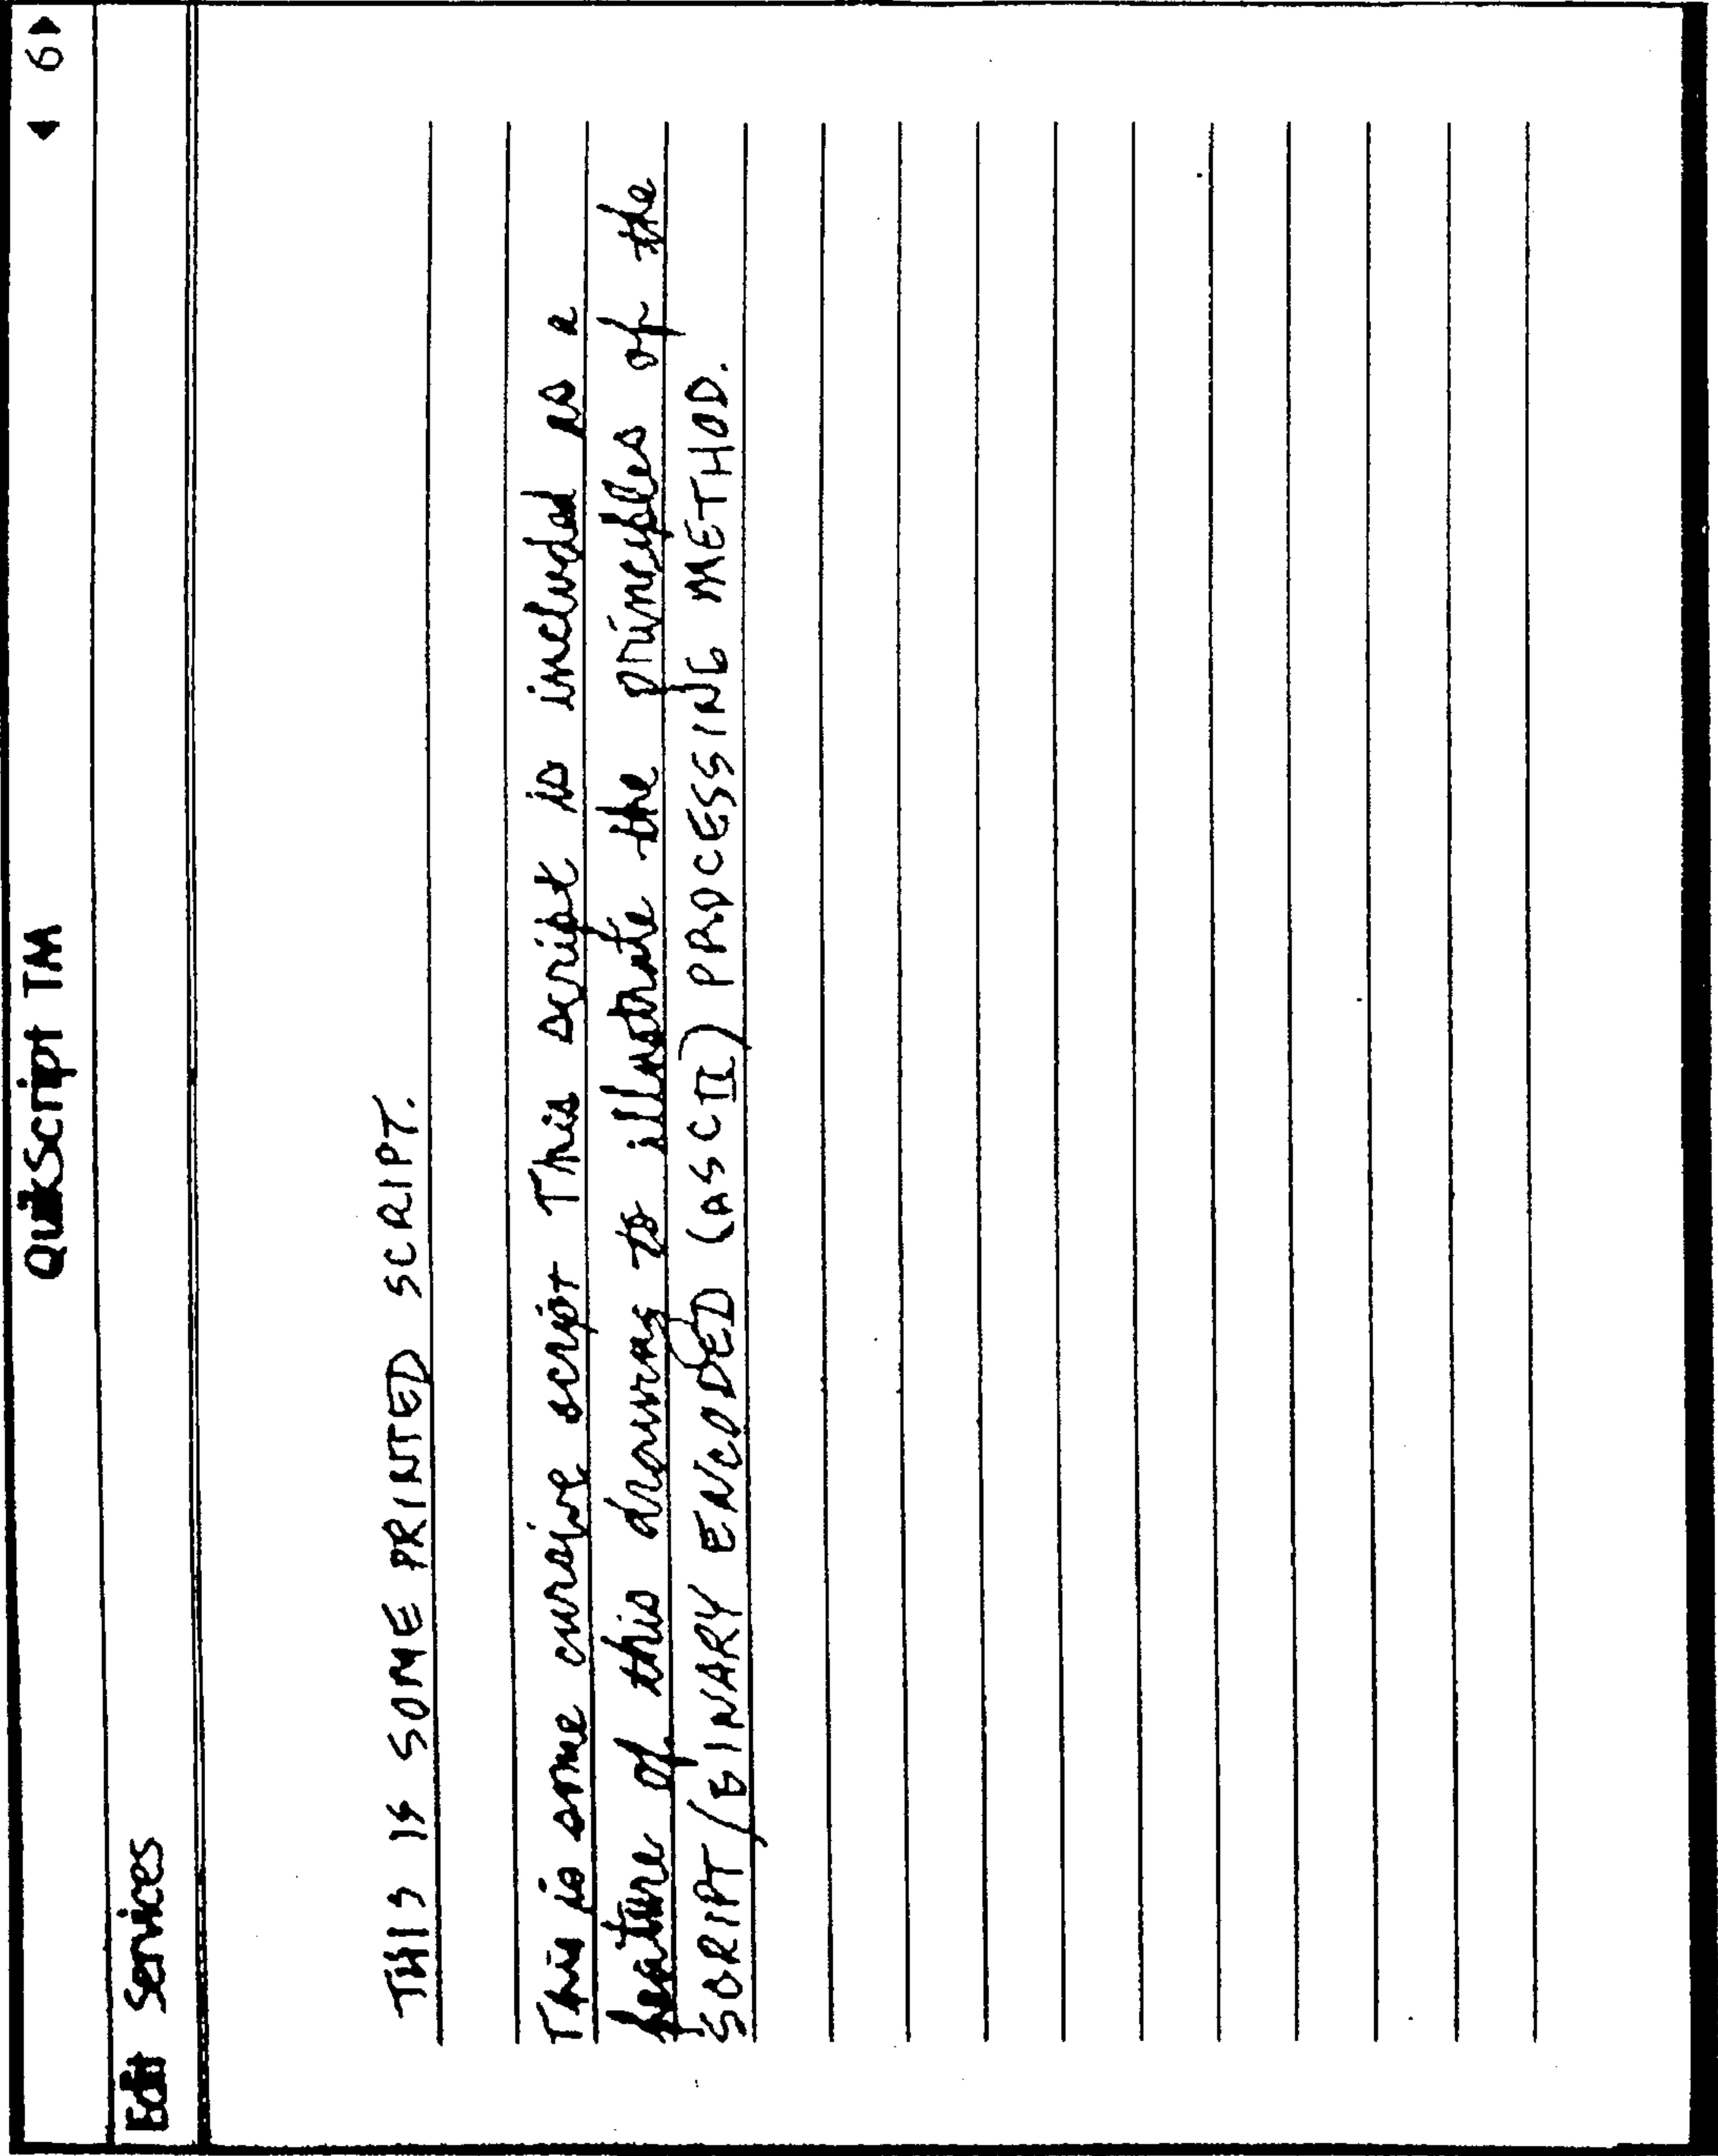 QuikScript TM ◄ 6 ►
Edit Services
THIS IS SOME PRINTED SCRIPT.
This is some cursive script This script is included as a
feature of this drawing to illustrate the principles of the
SCRIPT/BINARY ENCODED (ASCII) PROCESSING METHOD.